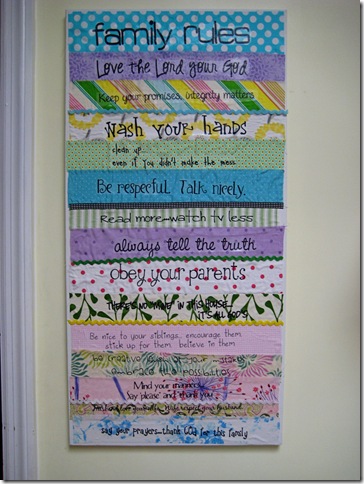 family rules
Love the Lord your God
Keep your promises, integrity matters
Wash your hands
clean up...
even if you didn't make the mess.
Be respecful. Talk nicely.
Read more-watch TV less
always tell the truth
obey your parents
THERE IS NO "MINE" IN THIS HOUSE...
IT'S ALL GOD'S
Be nice to your siblings, encourage them,
stick up for them, believe in them
be creative
embrace the possibilities
Mind your manners
Say please and thank you
your husband
say your prayers-thank God for this family